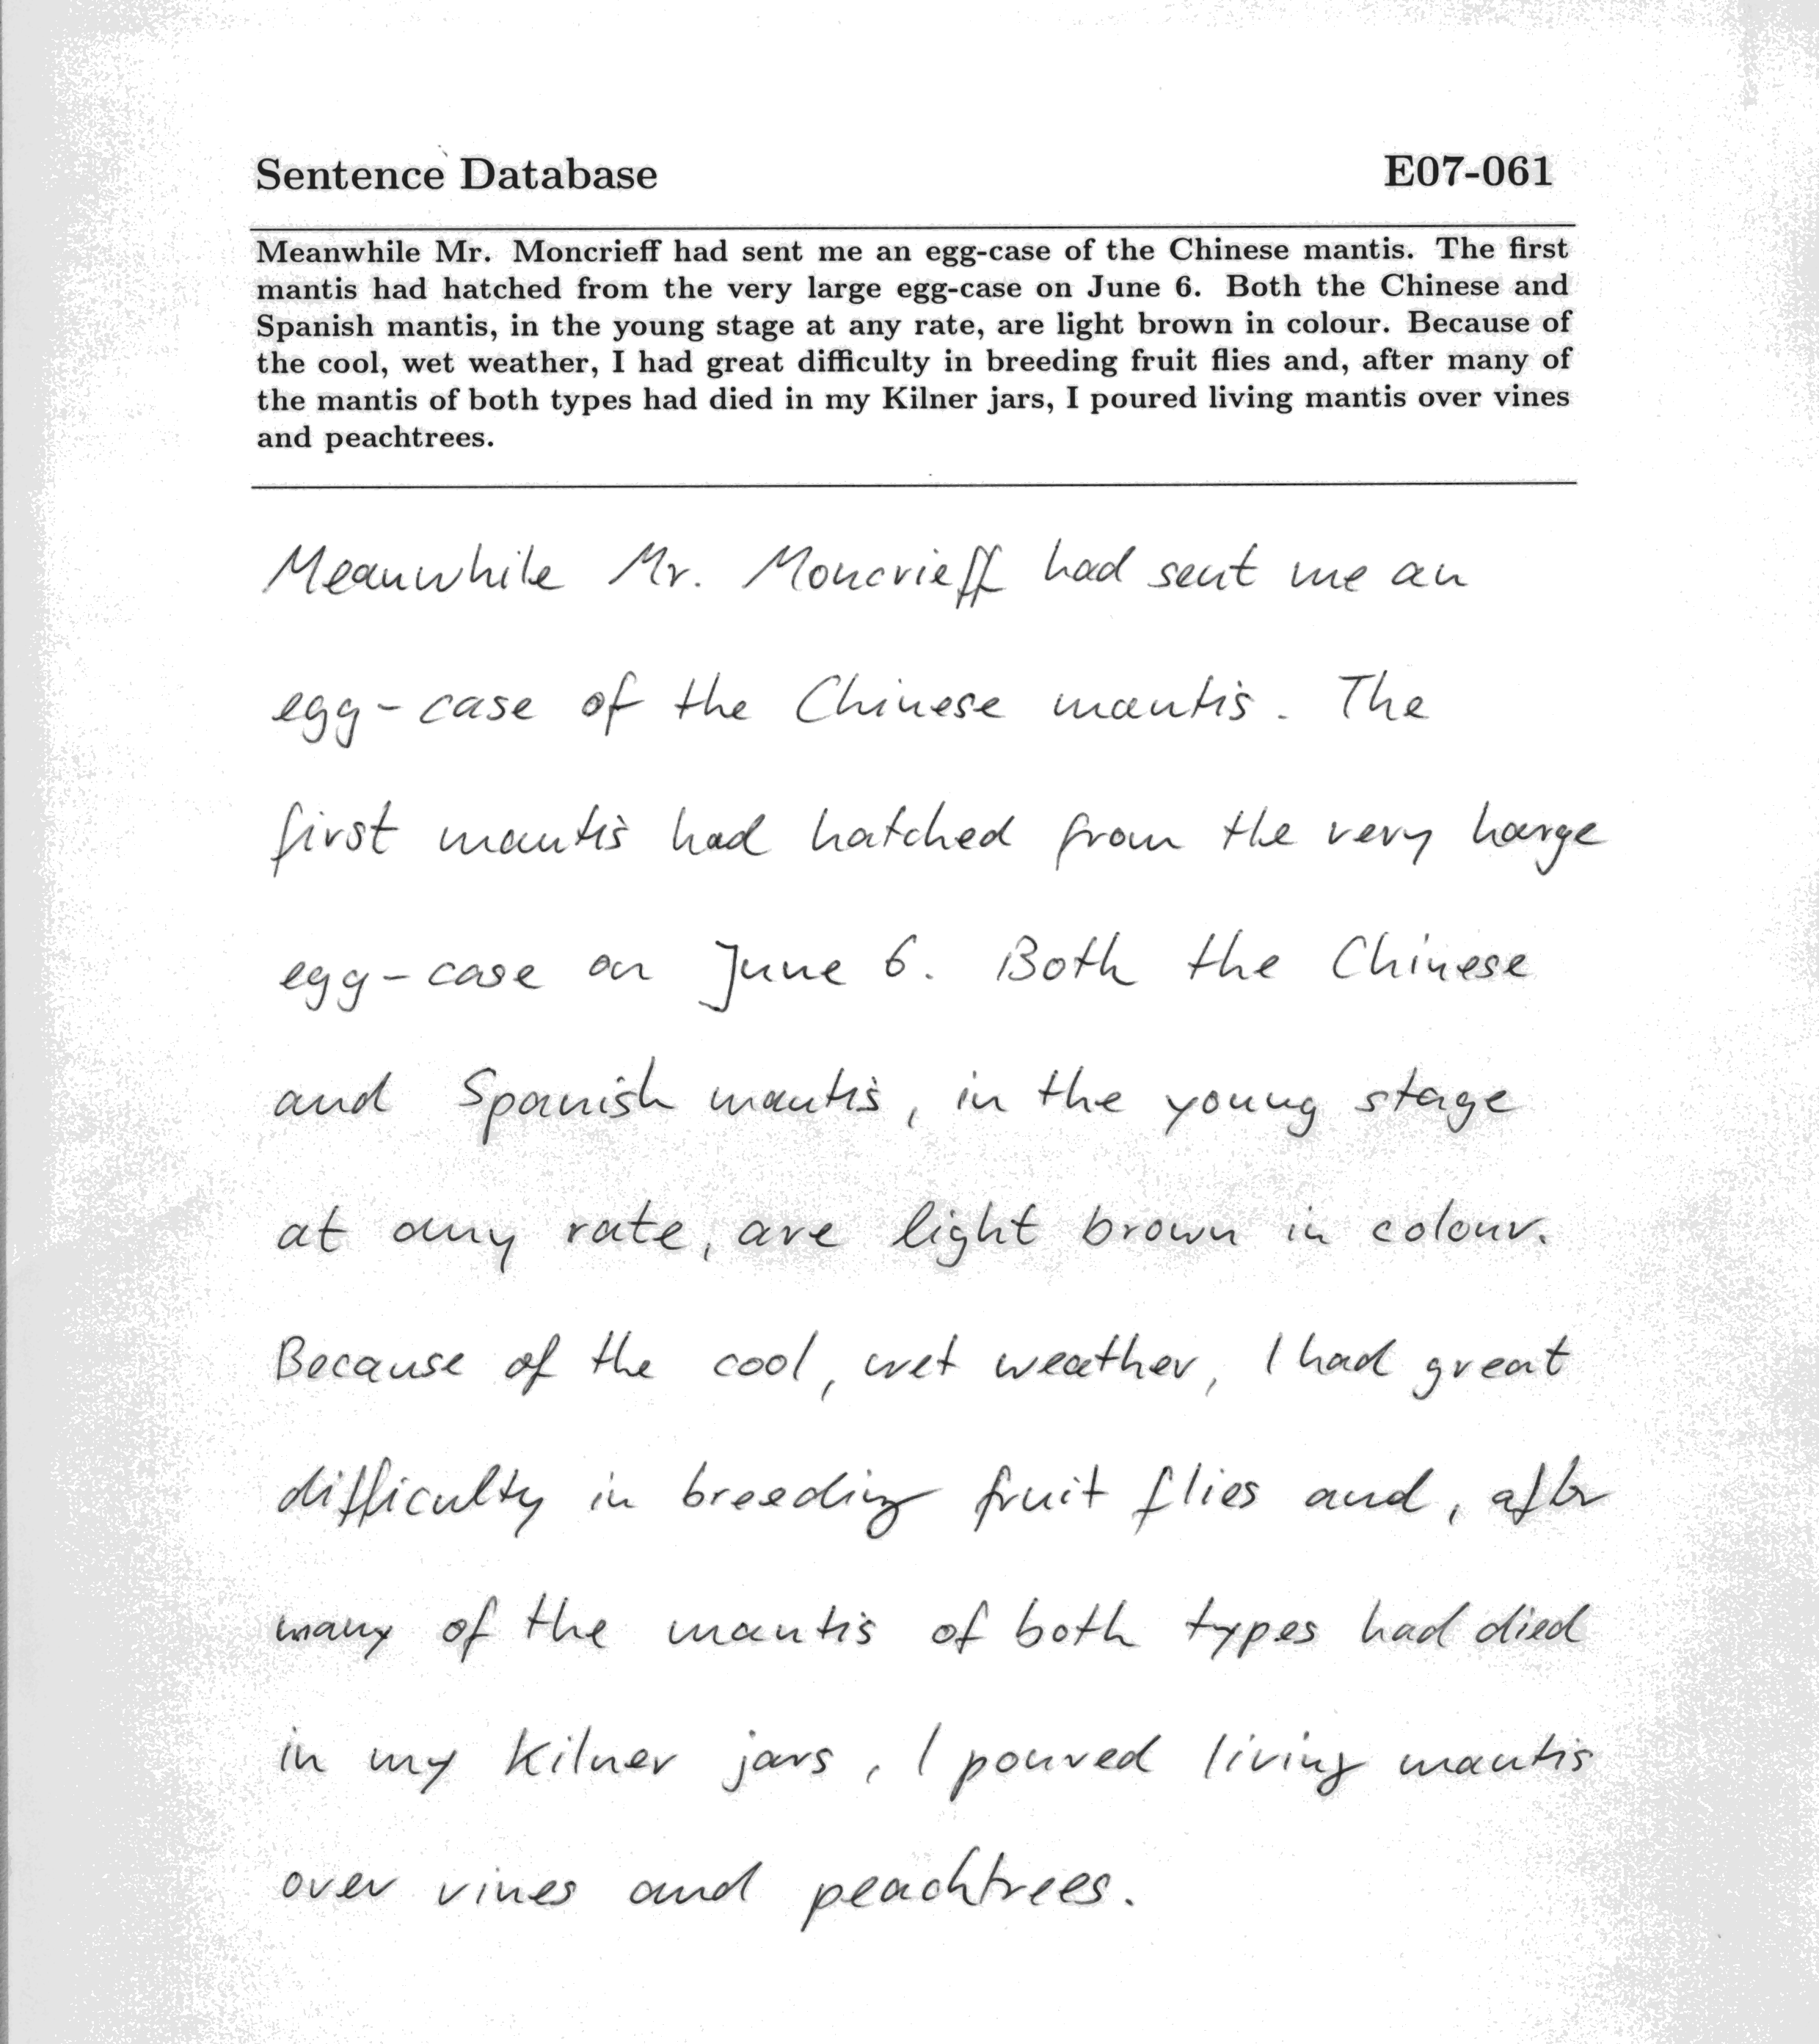 Sentence Database E07-061
Meanwhile Mr. Moncrieff had sent me an egg-case of the Chinese mantis. The first
mantis had hatched from the very large egg-case on June 6. Both the Chinese and
Spanish mantis, in the young stage at any rate, are light brown in colour. Because of
the cool, wet weather, I had great difficulty in breeding fruit flies and, after many of
the mantis of both types had died in my Kilner jars, I poured living mantis over vines
and peachtrees.
Meanwhile Mr. Moncrieff had sent me an
egg-case of the Chinese mantis. The
first mantis had hatched from the very large
egg-case on June 6. Both the Chinese
and Spanish mantis, in the young stage
at any rate, are light brown in colour.
Because of the cool, wet weather, I had great
difficulty in breeding fruit flies and, after
many of the mantis of both types had died
in my Kilner jars, I poured living mantis
over vines and peachtrees.